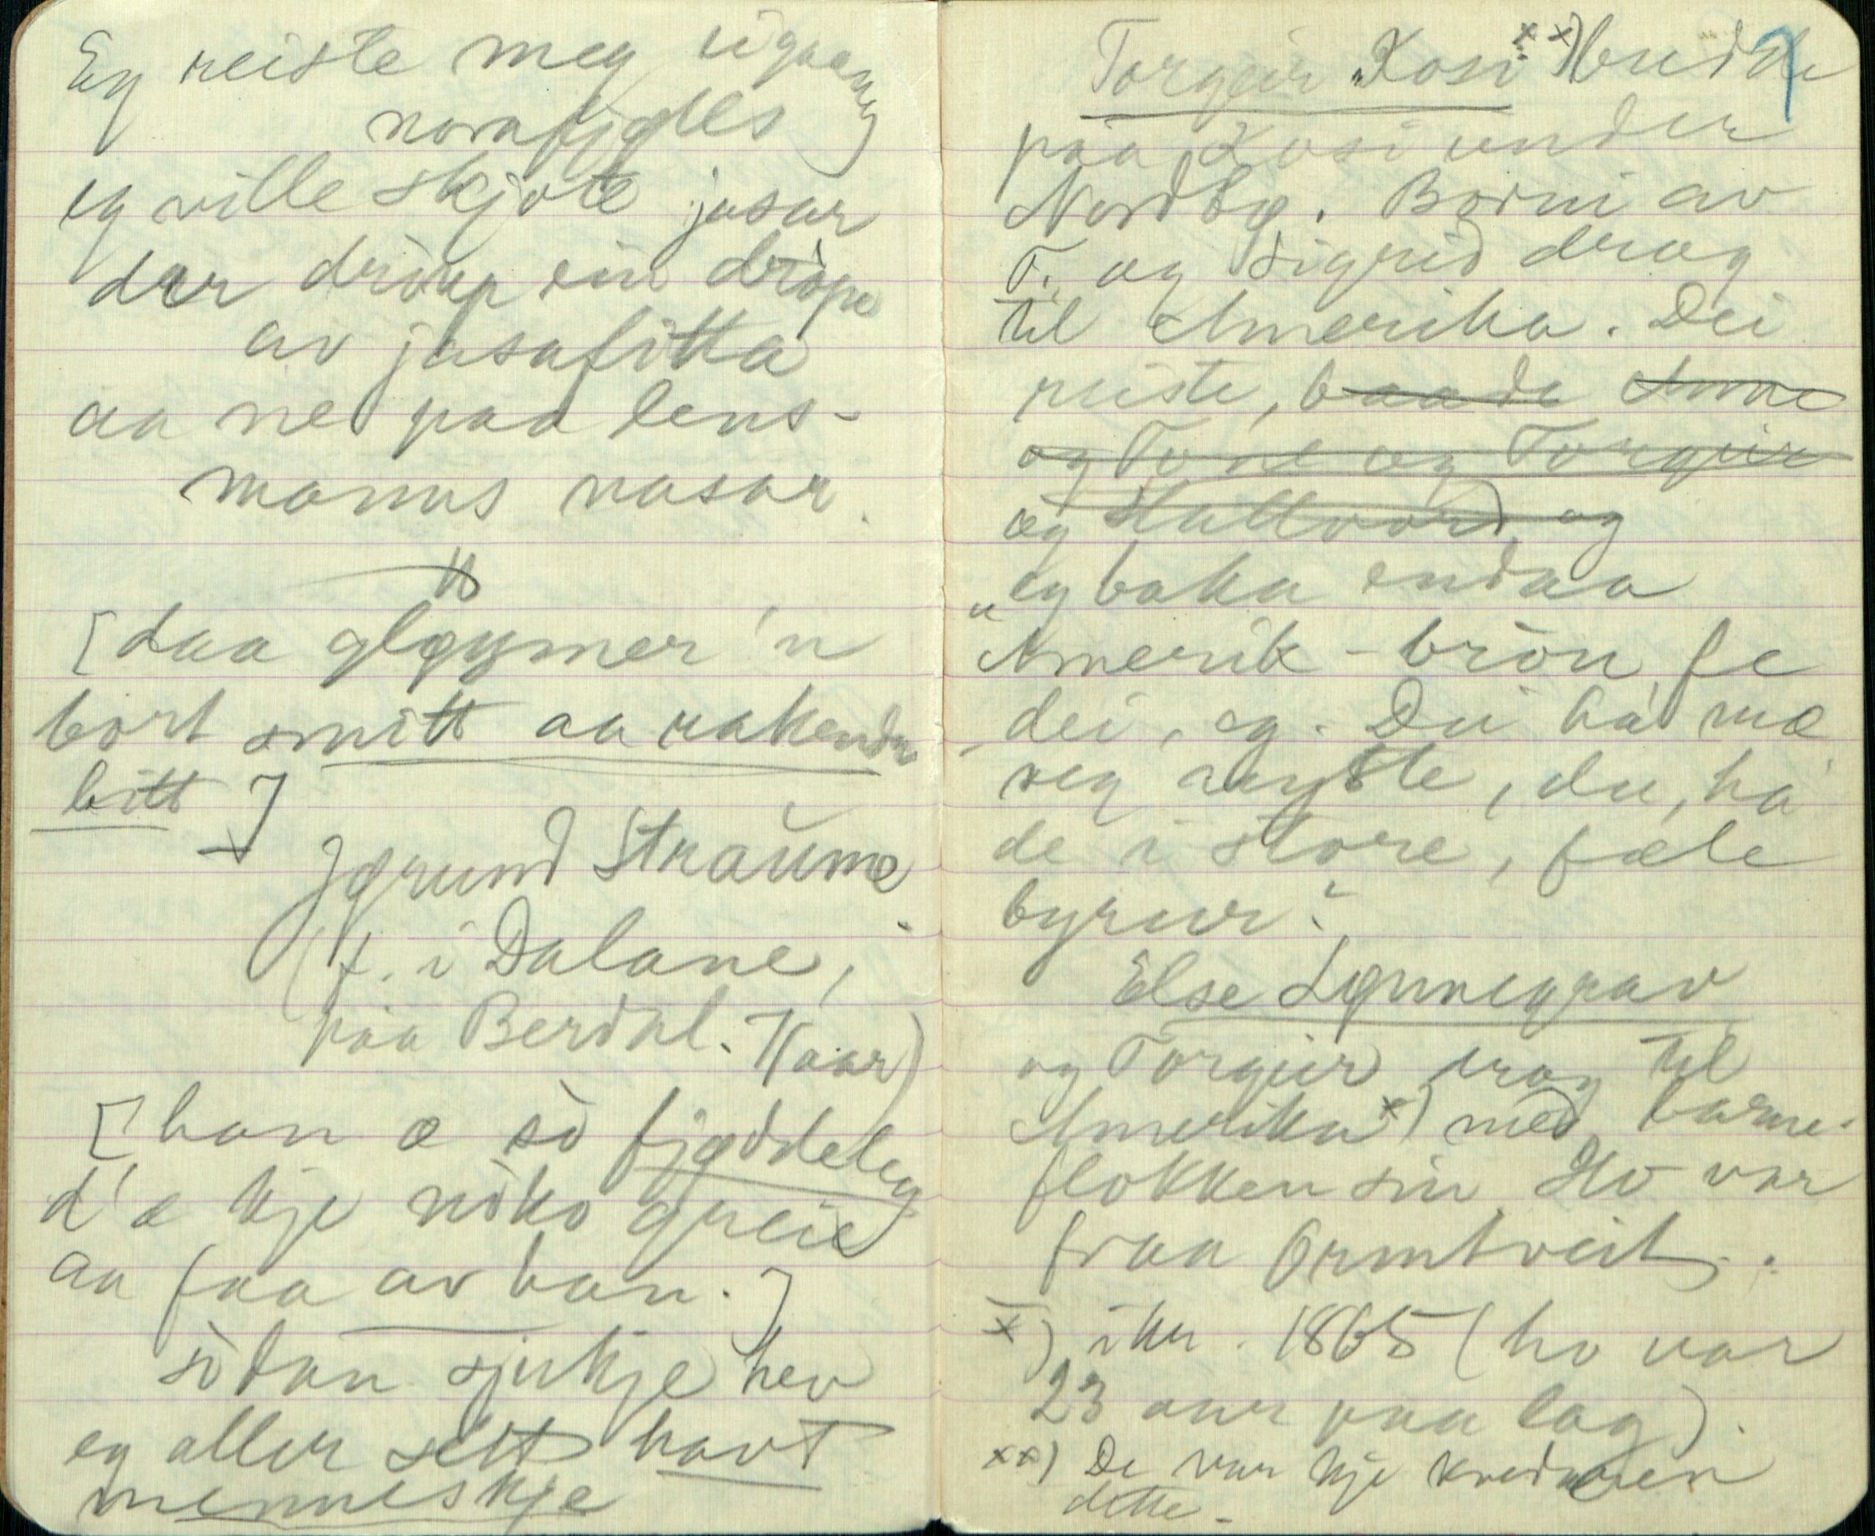 Eg reiste meg eigaang
norafjølls
eg ville skjote jasar
der draup ein dråpe
av jasafitta
aa ned paa lens-
manns nasar.
[daa gløymer 'n
bort smitt aa rakendes
bitt]
Jørund Straume
(f. i Dalane,
paa Berdal. 7 aar)
[han æ sò fjøddeleg
d'æ kje nòko greie
aa faa av han.]
sòdan sjukje hev
eg aller sett havt
menneskje
Torgeir "Kosi" xx) budde
paa Kosi under
Nordbø. Borni av
T. og Sigrid drog
til Amerika. Dei
reiste, baade Anne
og Tone og Torgeir
og Hallvord og
"eg baka endaa
Amerik-brøu fe
dei, eg. Dei ha mæ
seg rayste, du, ha
de i store, fæle
byrur."
Else Lønnegrav
og Torgeir drog til
Amerika x) med barne-
flokken sin. Ho var
fraa Ormtveit.
x) ikr. 1865 (ho var
23 aar paa lag).
xx) De var kje kvedaren
dette.